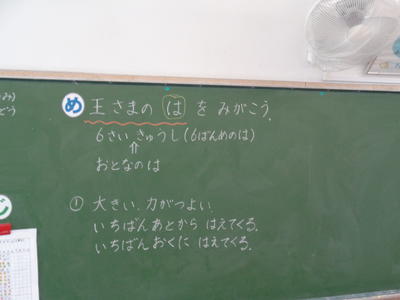 め 王さまの は を みがこう.
6さい きゅうし(6ばんめのは)
⇑
おとなのは
① 大きい.力がつよい
いちばんあとから はえてくる.
いちばんおくに はえてくる.
み)
どう
じ